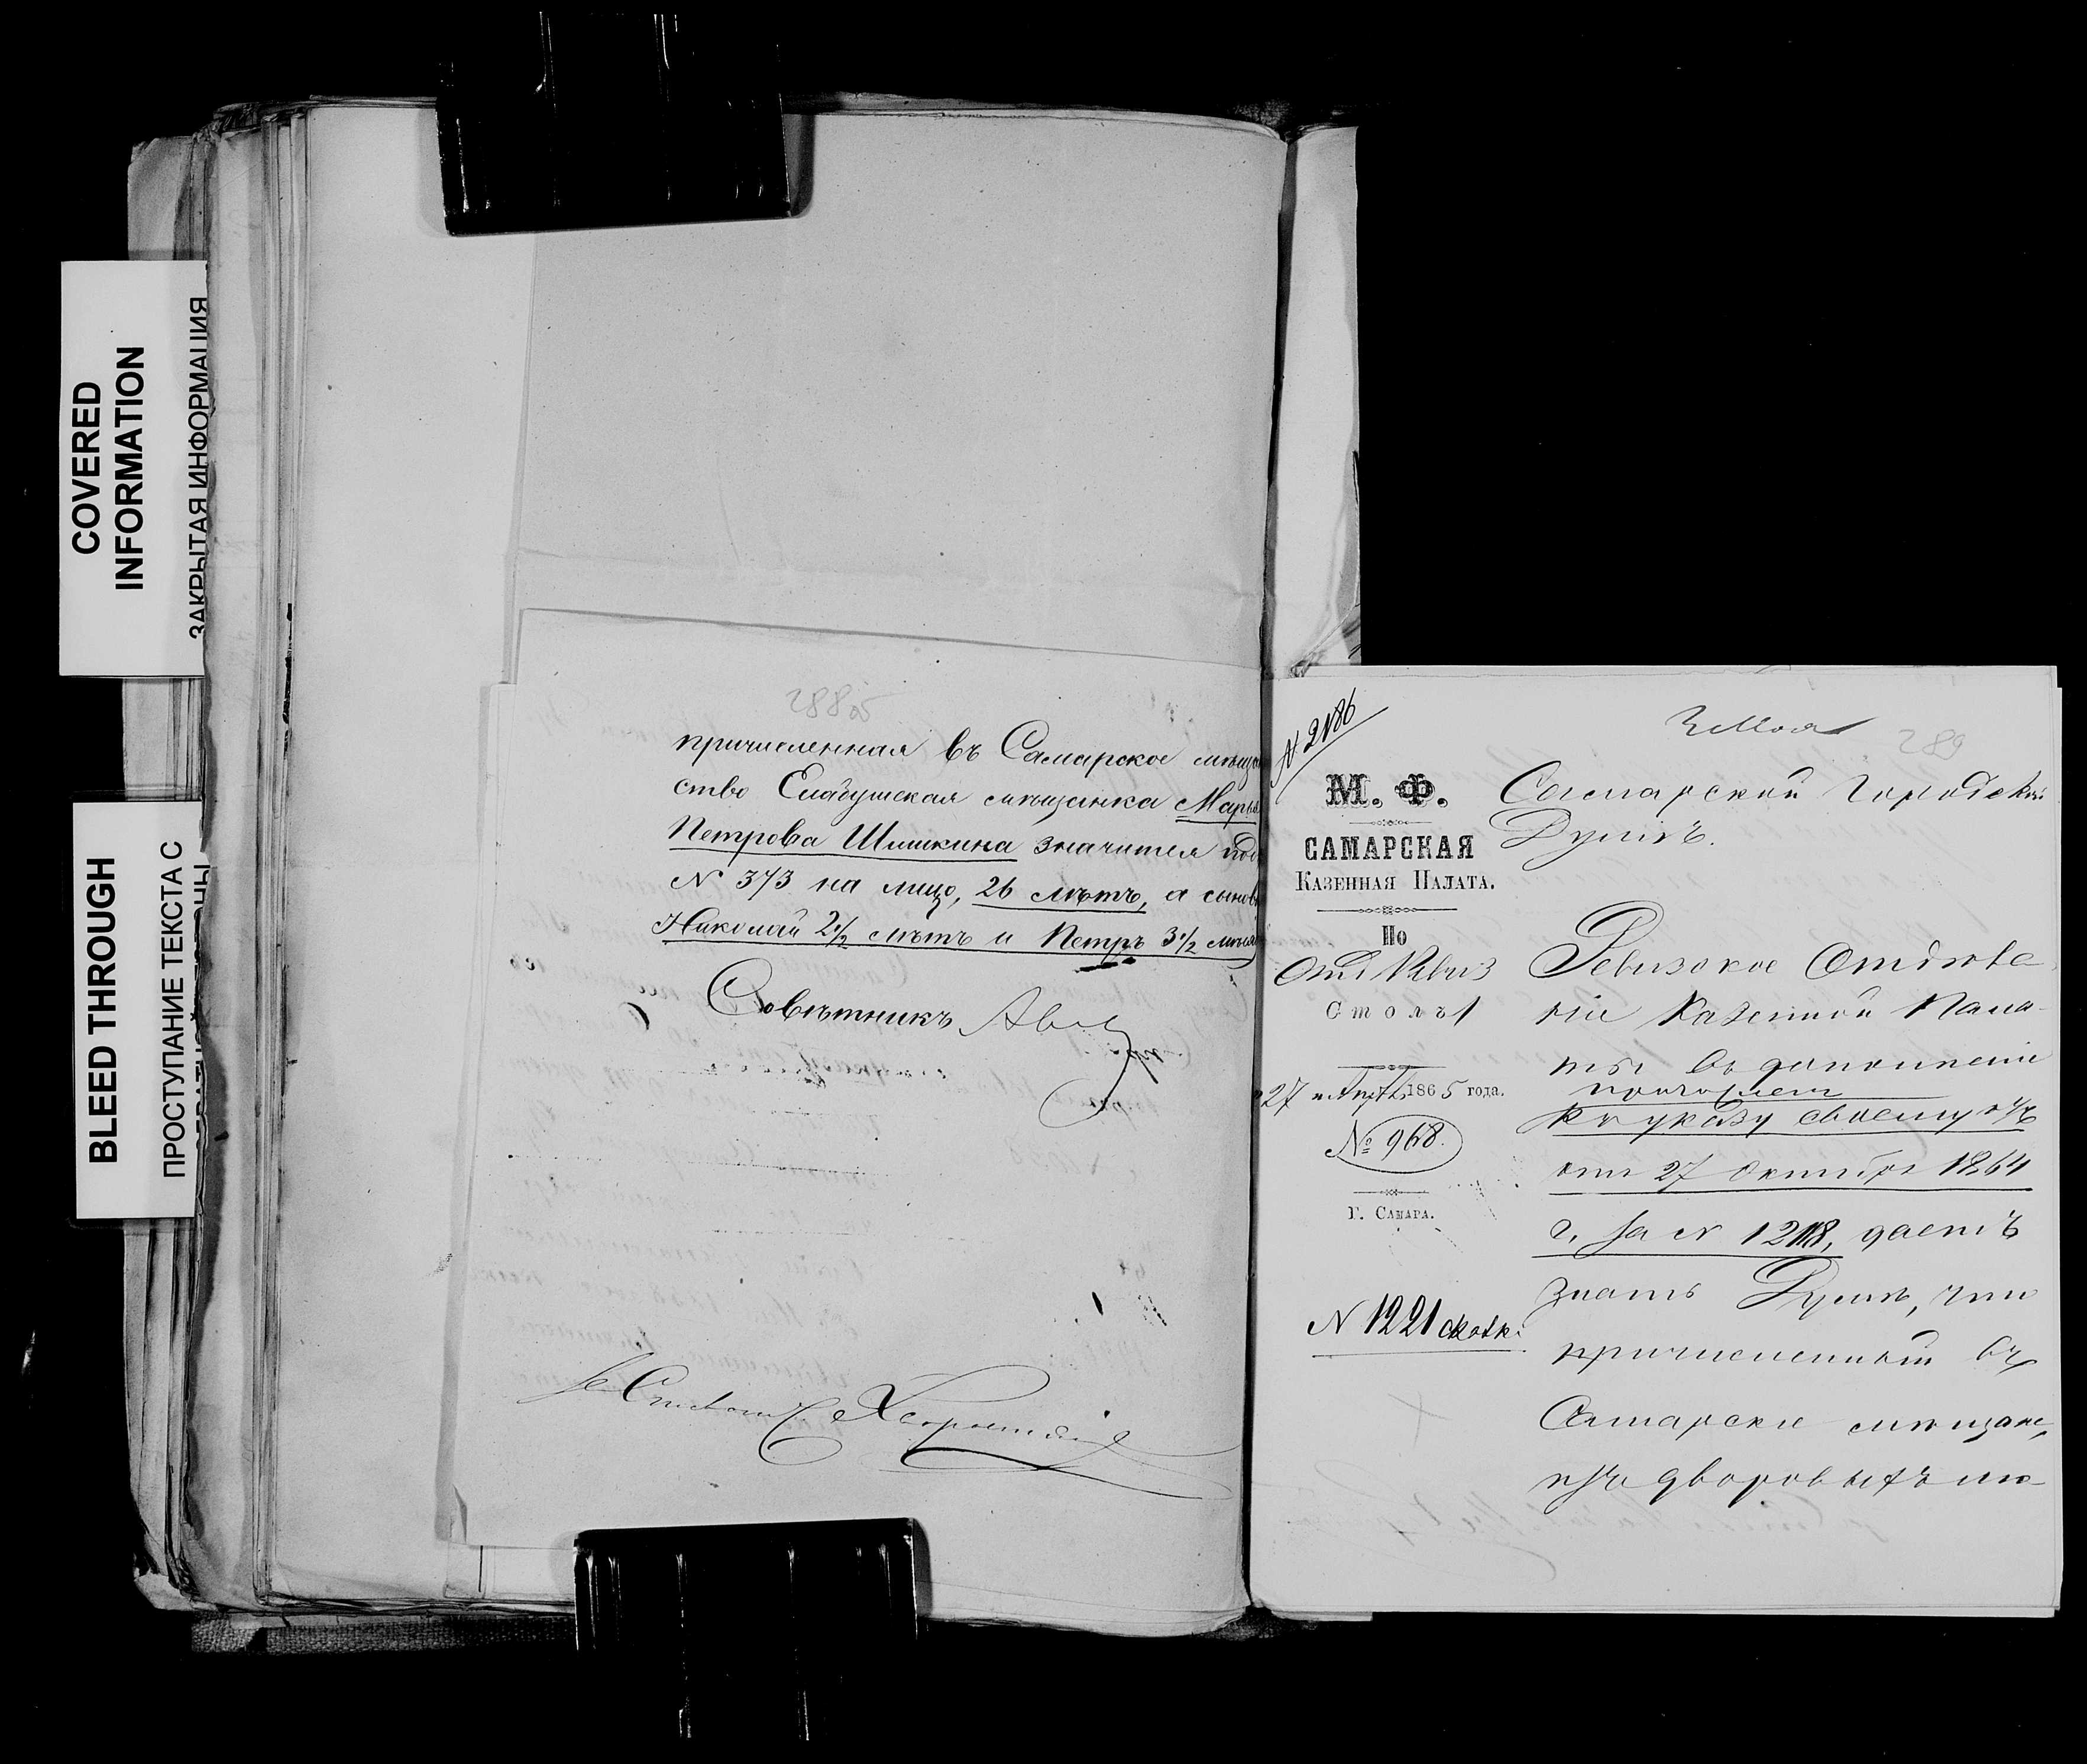 COVERED
INFORMATION
ЗАКРЫТАЯ ИНФОРМАЦИЯ
BLEED THROUGH
ПРОСТУПАНИЕ ТЕКСТА С
288 об
причисленная въ Самарское мѣща
ство Елабушская мѣщанка Марья
Петрова Шишкина значится подъ
N 373 на лицо, 26 лѣтъ, а сыновья
Николай 2 1/2 лѣтъ и Петръ 3 1/2 мѣся
Совѣтникъ
N 2186
3 Мая
289
М. Ф.
САМАРСКАЯ
КАЗЕННАЯ ПАЛАТА.
По
Отд Ревиз
Столъ 1
27 Апрѣ 1865 года.
№ 968.
Г. САМАРА.
N 1221
Самарской Городской
Думѣ.
Ревизское Отдѣле
ніе Казенной Пала-
ты въ дополненіе
къ указу своему
отъ 27 Октября 1864
г. за N 1218, даетъ
знать Думѣ, что
причисленный въ
Самарскіе мѣщане,
изъ дворовыхъ лю-